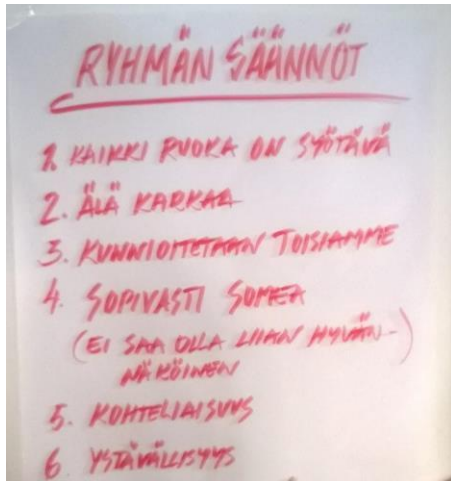 RYHMÄN SÄÄNNÖT
1. KAIKKI RUOKA ON SYÖTÄVÄ
2. ÄLÄ KARKAA
3. KUNNIOITETAAN TOISIAMME
4. SOPIVASTI SOMEA
(EI SAA OLLA LIIAN HYVÄN-)
NÄKÖINEN
5. KOHTELIAISUUS
6. YSTÄVÄLLISYYS